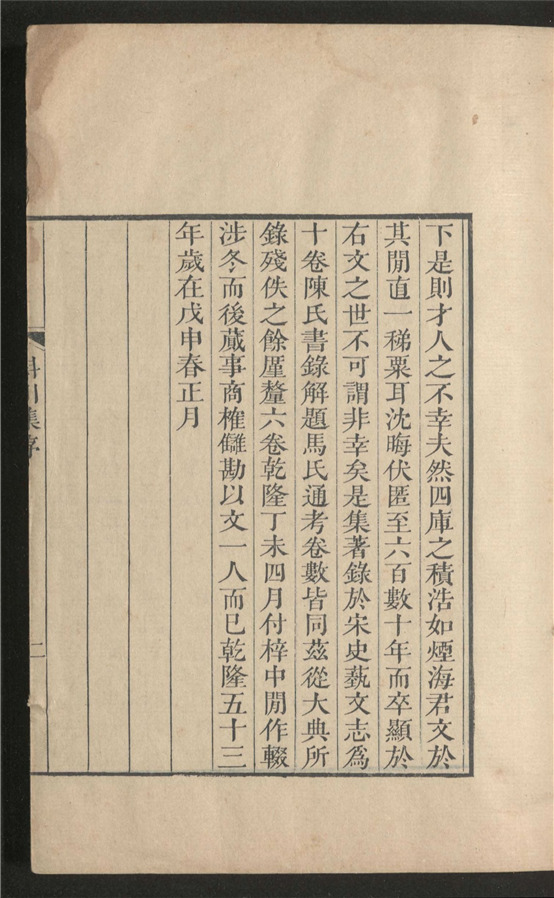 下是則才人之不幸夫然四庫之積浩如煙海君文於
其閒直一稊粟耳沈晦伏匿至六百數十年而卒顯於
右文之世不可謂非幸矣是集著錄於宋史藝文志爲
十卷陳氏書錄解題馬氏通考卷數皆同茲從大典所
錄殘佚之餘厘釐六卷乾隆丁未四月付梓中閒作輟
涉冬而後蕆事商榷讎勘以文一人而已乾隆五十三
年歲在戊申春正月
川集序
二